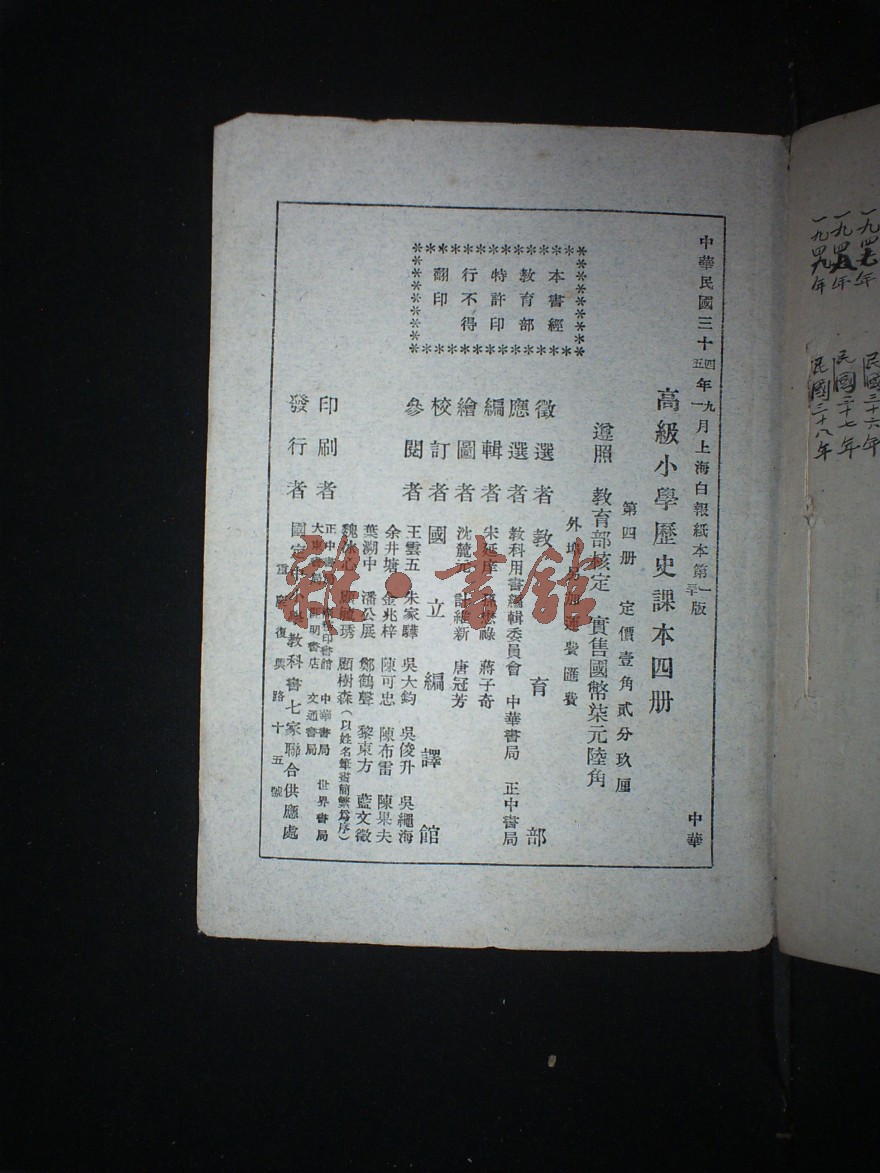 一九四七年 民國三十六年
一九四八年 民國三十七年
一九四九年 民國三十八年
中華民國三十四五年九一月上海白報紙本第一三十版 中華
高級小學歷史課本四册
第四册 定價壹角貳分玖厘
遵照 教育部核定 實售國幣柒元陸角
外埠 加運費匯費
本書經
教育部
特許印
行不得
翻印
徵選者 教育部
應選者 教科用書編輯委員會 中華書局 正中書局
編輯者 蔣子奇
繪圖者 沈麓元 新 唐冠芳
校訂者 國立編譯館
參閱者 王雲五 朱家驊 吳大鈞 吳俊升 吳繩海
余井塘 金兆梓 陳可忠 陳布雷 陳果夫
葉溯中 潘公展 鄭鶴聲 黎東方 藍文徵
魏冰心 琇 顧樹森(以姓名筆畫簡繁爲序)
印刷者 正中書局 印書館 中華書局 世界書局
大東書局 開明書店 文通書局
發行者 國定中小學教科書七家聯合供應處
重慶復興路十五號
雜·書館